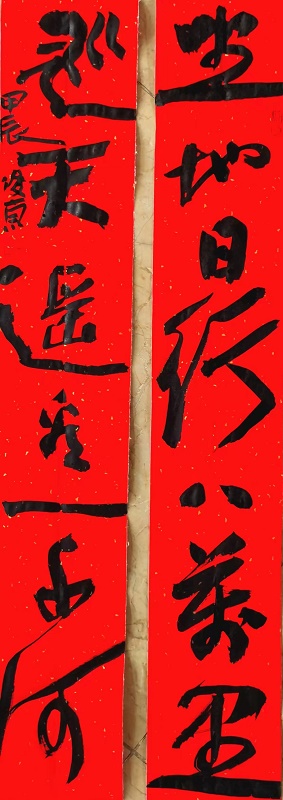 坐地日行八萬里
巡天遥看一千河
甲辰